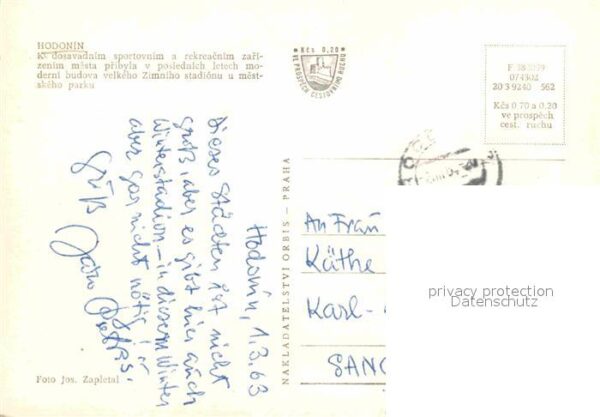 HODONÍN
K dosavadním sportovním a rekreačním zaří-
zením města přibyla v posledních letech mo-
derní budova velkého Zimního stadiónu u měst-
ského parku
Kčs 0,20
VE PROSPĚCH CESTOVNÍHO RUCHU
F 182079
074302
20 3 9240 562
Kčs 0,70 a 0,20
ve prospěch
cest. ruchu
Hodonín, 1.3.63
Dieses Städten ist nicht
groß, aber es gibt hier auch
Winterstadion – in diesem Winter
aber gar nicht nötig, is
Grüß
NAKLADATELSTVÍ ORBIS – PRAHA
An Frau
Käthe
Karl-
SANG
privacy protection
Datenschutz
Foto Jos. Zapletal